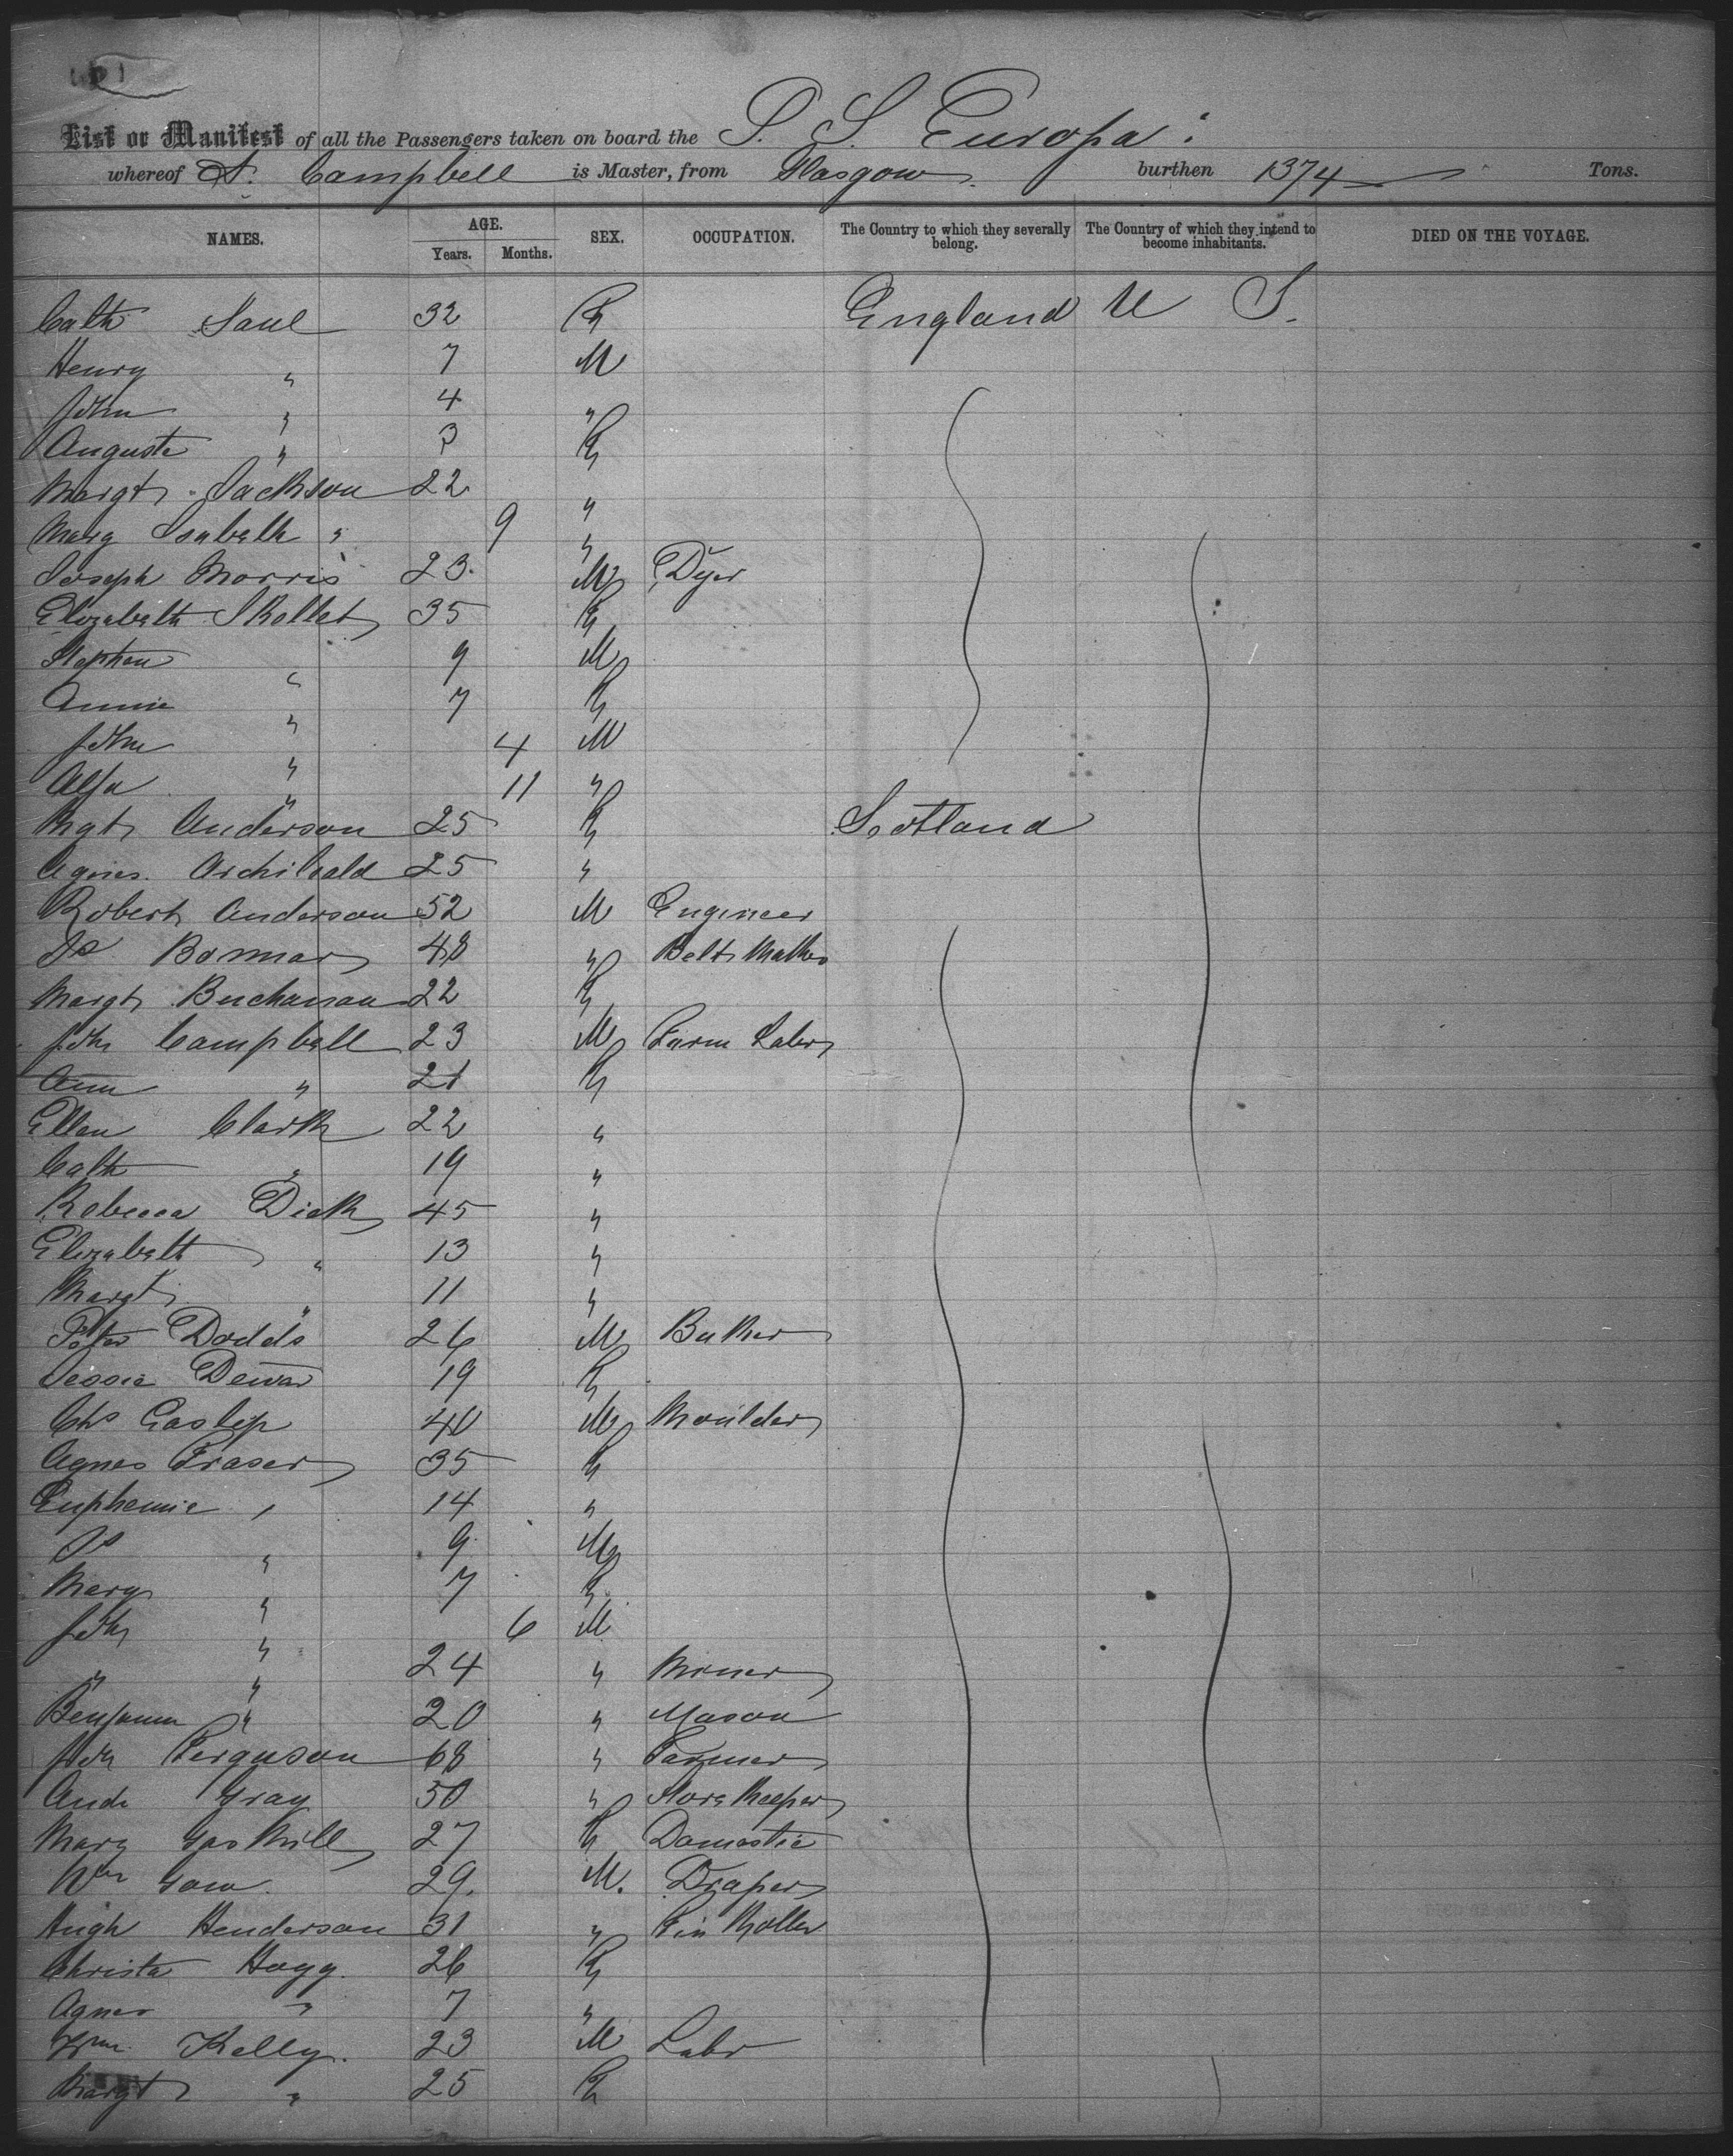 List or Manifest of all the Passengers taken on board the S. S. Europa
whereof A. Campbell is Master, from Glasgow burthen 1374 Tons.
NAMES. AGE. Years. Months. SEX. OCCUPATION. The Country to which they severally belong. The Country of which they intend to become inhabitants. DIED ON THE VOYAGE.
Cath Saul 32 F England U S.
Henry " 7 M
John " 4 "
Augusta " 3 F
Margt Jackson 22 "
Mary Isabella " 9 "
Joseph Morris 23 M Dyer
Elizabeth Skollet 35 F
Stephen " 9 M
Annie " 7 F
John " 4 M
" 11 "
Mgt Anderson 25 F Scotland
Agnes Archibald 25 "
Robert Anderson 52 M Engineer
Js 48 " Belt Maker
Margt Buchanan 22 F
John Campbell 23 M Farm Labr
Ann " 21 F
Ellen Clark 22 "
Cath " 19 "
Rebecca Dick 45 "
Elizabeth " 13 "
Margt " 11 "
Peter Dodds 26 M Baker
Jessie Dewar 19 F
Chs 40 M Moulder
Agnes Fraser 35 F
Euphemia " 14 "
Js " 9 M
Mary " 7 F
John " 6 M
" " 24 " Miner
Benjamin " 20 " Mason
John Ferguson 68 " Farmer
Andr Gray 50 " Store Keeper
Mary Gaskill 27 F Domestic
Wm Gow 29 M. Draper
Hugh Henderson 31 "
Christa Hogg 26 F
Agnes " 7 "
Wm Kelly 23 M Labr
Margt " 25 F